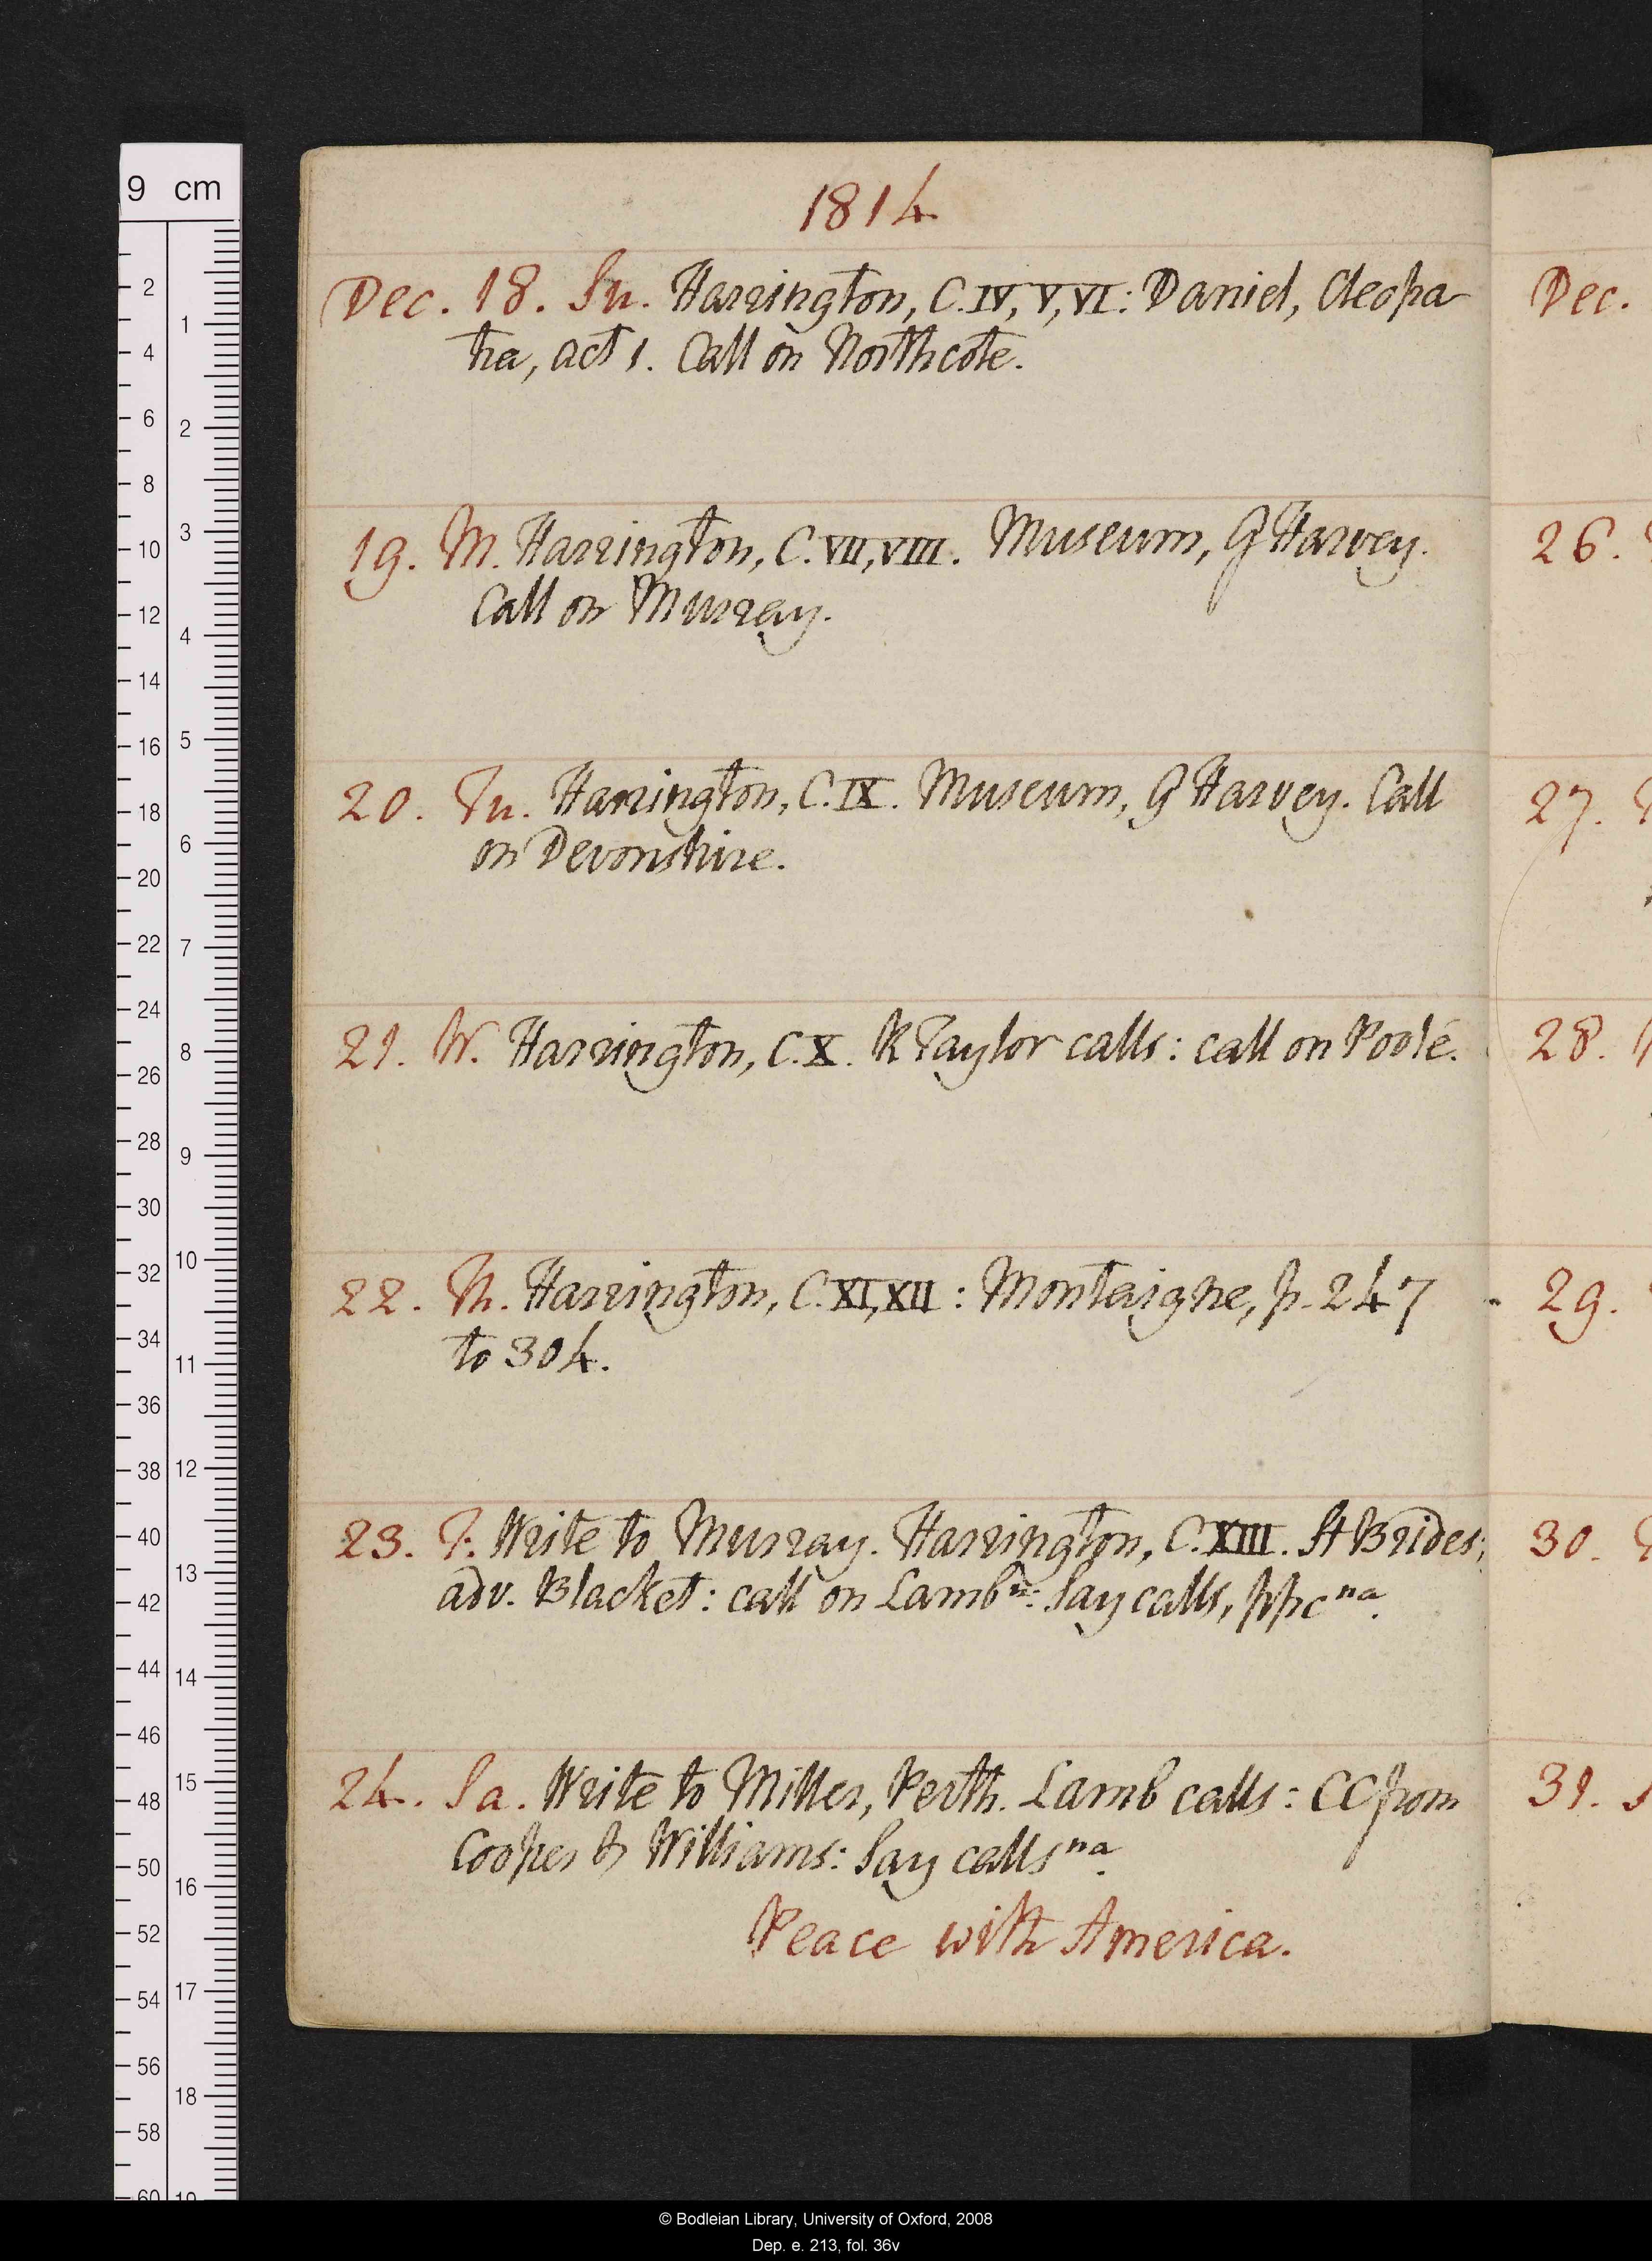 1814
Dec. 18. Su. Harrington, C. IV, V, VI: Daniel, Cleopa
tra, act 1. Call on Northcote.
19. M. Harrington, C. VII, VIII. Museum, G Harvey.
Call on Murray.
20. Tu. Harrington, C. IX. Museum, G Harvey. Call
on Devonshire.
21. W. Harrington, C. X. R Taylor calls: call on Poole.
22. Th. Harrington, C. XI, XII: Montaigne, p. 247
to 304.
23. F. Write to Murray. Harrington, C. XIII. St Brides;
adv. Blacket: call on Lamb n: Say calls, ppc na.
24. Sa. Write to Miller, Perth. Lamb calls: CC from
Cooper & Williams: Say calls na.
Peace with America.
Dec.
26.
27.
28.
29.
30.
31.
9 cm
2
4
6
8
10
12
14
16
18
20
22
24
26
28
30
32
34
36
38
40
42
44
46
48
50
52
54
56
58
60
1
2
3
4
5
6
7
8
9
10
11
12
13
14
15
16
17
18
19
© Bodleian Library, University of Oxford, 2008
Dep. e. 213, fol. 36v